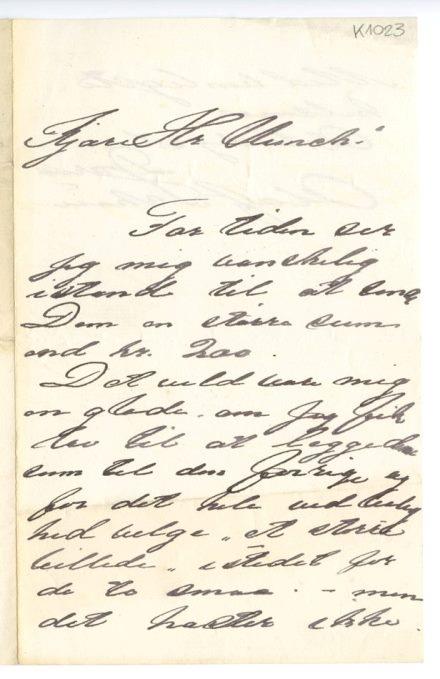 K1023
Kjære Hr Munch!
For tiden ser
jeg mig vanskelig
istand til at sende
Dem en større sum
end kr. 200.
Det vild være mig
en glæde om jeg fik
lov til at lægge den
sum til den forrige og
for det hele ved leilig
hed velge "et større
billede" istedet for
de to smaa. – men
det haster ikke.